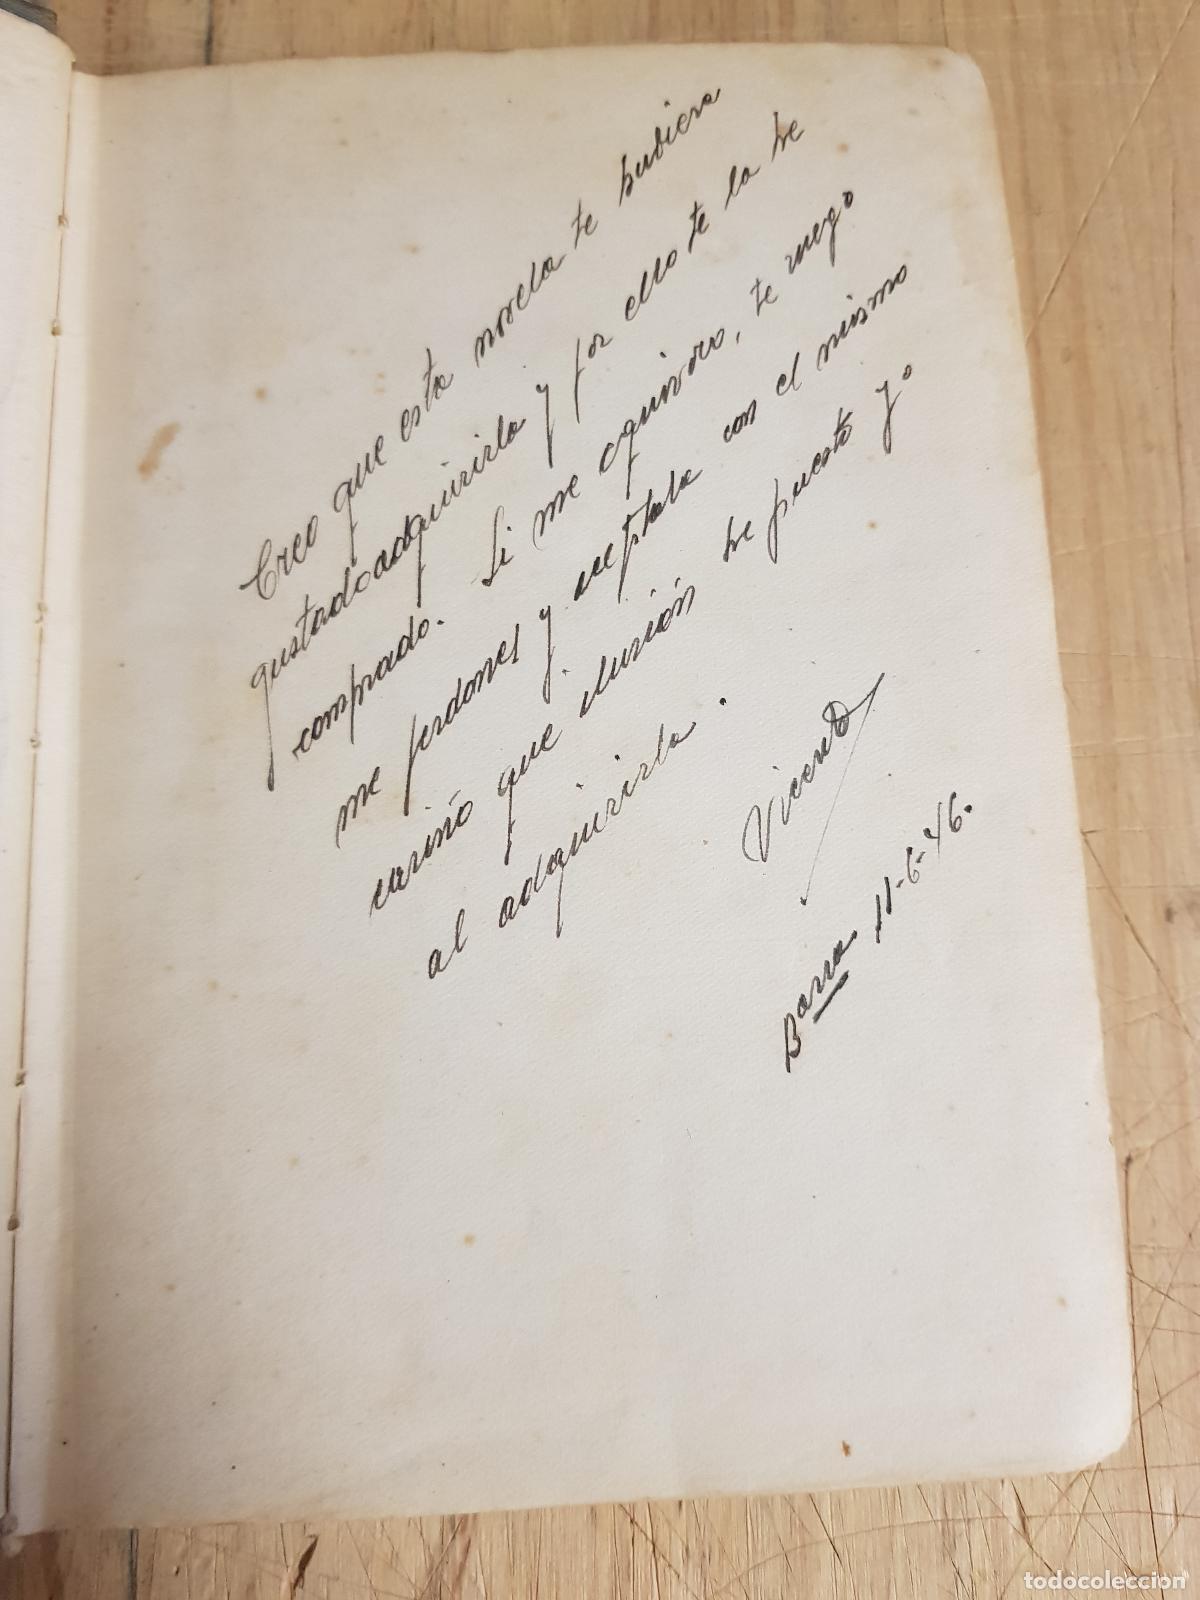 Creo que esta novela te hubiera
gustado adquirirla y por ello te la he
comprado. Si me equivoco, te ruego
me perdones y aceptala con el mismo
cariño que ilusión he puesto yo
al adquirirla.
Vicente
Barna. 11-6-46.
todocoleccion